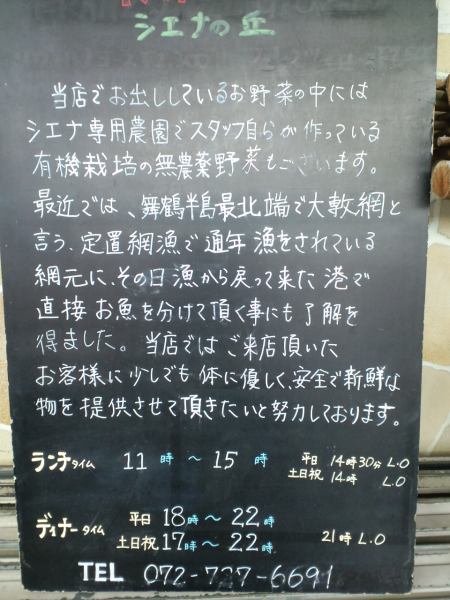 シエナの丘
当店でお出ししているお野菜の中には
シエナ専用農園でスタッフ自らが作っている
有機栽培の無農薬野菜もございます。
最近では、舞鶴半島最北端で大敷網と
言う、定置網漁で通年漁をされている
網元に、その日漁から戻って来た港で
直接お魚を分けて頂く事にも了解を
得ました。当店ではご来店頂いた
お客様に少しでも体に優しく、安全で新鮮な
物を提供させて頂きたいと努力しております。
ランチタイム 11時〜15時 平日 14時30分 L.O
土日祝 14時 L.O
ディナータイム 平日 18時〜22時
土日祝 17時〜22時 21時 L.O
TEL 072-727-6691